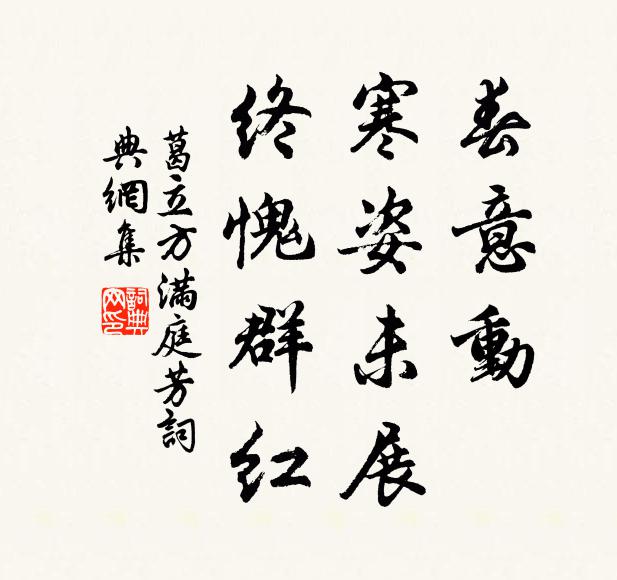 春意動
寒姿未展
終愧群紅
葛立方滿庭芳詞
典網集
詞典
网印